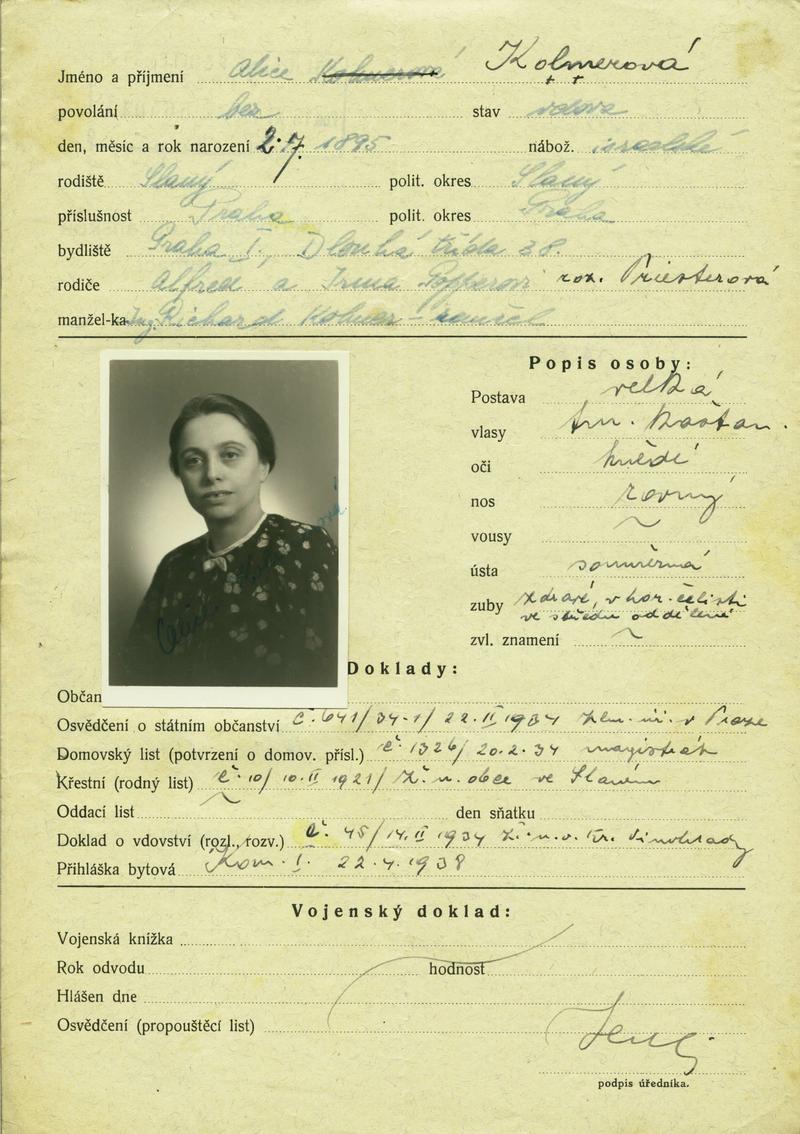 Jméno a příjmení Alice Kolmerová Kolmerová
povolání bez stav vdova
den, měsíc a rok narození 2.7. 1895 nábož. israelské
rodiště Slaný polit. okres Slaný
příslušnost Praha polit. okres Praha
bydliště Praha I., Dlouhá třída 38.
rodiče Alfred a Irma Popperovi roz. Priesterová
manžel-ka Ing. Richard Kolmer - zemřel
Popis osoby:
Postava velká
vlasy tm. kaštan.
oči hnědé
nos rovný
vousy ~
ústa souměrná
zuby zdravé, v hor. čelisti
ve středu oddělené
zvl. znamení ~
Doklady:
Občan
Osvědčení o státním občanství č. 641/34-1/22.II 1934 v Praze
Domovský list (potvrzení o domov. přísl.) č. 1326/20.2.34 magistrát
Křestní (rodný list) č. 10/10.II 1921/ž. n. obce ve Slaném
Oddací list ~ den sňatku
Doklad o vdovství (rozl., rozv.) č. 45/14.II 1934 ž. n. o. Kr. Vinohrady
Přihláška bytová Kom. I. 22.4.1938
Vojenský doklad:
Vojenská knížka
Rok odvodu hodnost
Hlášen dne
Osvědčení (propouštěcí list)
podpis úředníka.